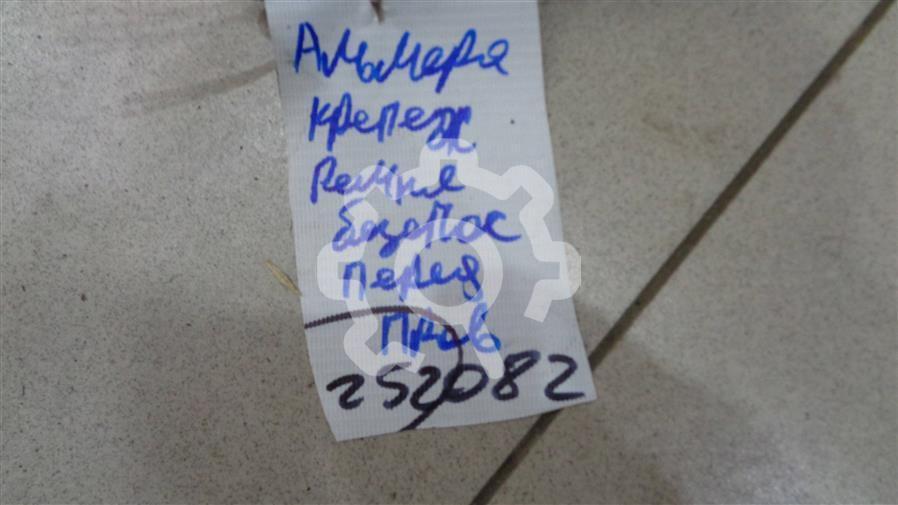 Альмера
крепеж
ремня
безопас
перед
прав
252082